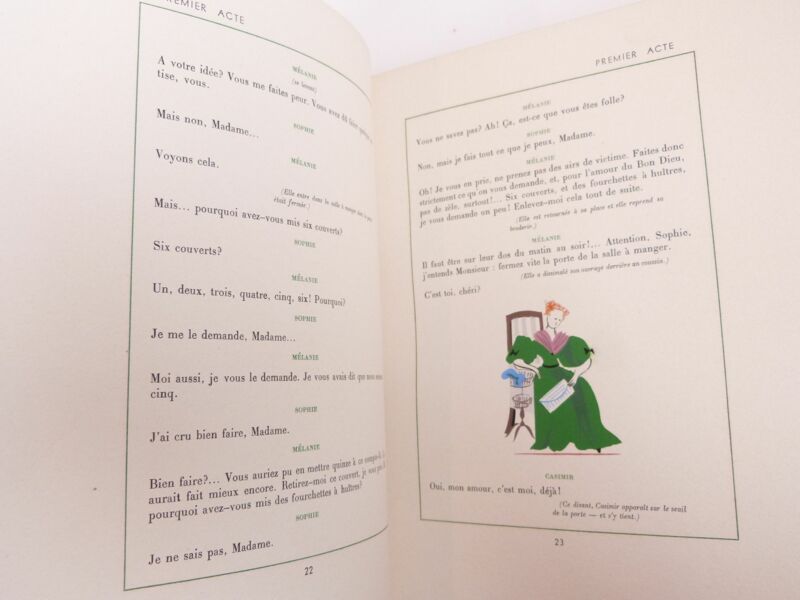 PREMIER ACTE
MÉLANIE
(se levant)
A votre idée? Vous me faites peur. Vous avez dû faire quelque
tise, vous.
SOPHIE
Mais non, Madame...
MÉLANIE
Voyons cela.
(Elle entre dans la salle à manger dont la porte
était fermée.)
Mais... pourquoi avez-vous mis six couverts?
SOPHIE
Six couverts?
MÉLANIE
Un, deux, trois, quatre, cinq, six! Pourquoi?
SOPHIE
Je me le demande, Madame...
MÉLANIE
Moi aussi, je vous le demande. Je vous avais dit que nous
cinq.
SOPHIE
J'ai cru bien faire, Madame.
MÉLANIE
Bien faire?... Vous auriez pu en mettre quinze à ce compte-là
aurait fait mieux encore. Retirez-moi ce couvert, je vous
pourquoi avez-vous mis des fourchettes à huîtres?
SOPHIE
Je ne sais pas, Madame.
22
PREMIER ACTE
MÉLANIE
Vous ne savez pas? Ah! Ça, est-ce que vous êtes folle?
SOPHIE
Non, mais je fais tout ce que je peux, Madame.
MÉLANIE
Oh! Je vous en prie, ne prenez pas des airs de victime. Faites donc
strictement ce qu'on vous demande, et, pour l'amour du Bon Dieu,
pas de zèle, surtout!... Six couverts, et des fourchettes à huîtres,
je vous demande un peu! Enlevez-moi cela tout de suite.
(Elle est retournée à sa place et elle reprend sa
broderie.)
MÉLANIE
Il faut être sur leur dos du matin au soir!... Attention, Sophie,
j'entends Monsieur : fermez vite la porte de la salle à manger.
(Elle a dissimulé son ouvrage derrière un coussin.)
C'est toi, chéri?
CASIMIR
Oui, mon amour, c'est moi, déjà!
(Ce disant, Casimir apparaît sur le seuil
de la porte — et s'y tient.)
23